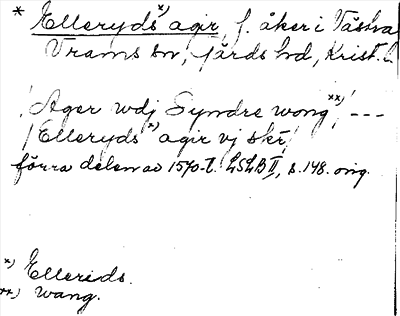 * Elleryds x) agir, f. åker i Västra
Vrams sn, Gärds hd, Krist. l.
/ Ager wdj Syndre wong xx) / ---
/ Elleryds x) agir vj skr /
förra delen av 1570-t. LSLB II, s. 148. orig.
x) Ellerids.
xx) wang.